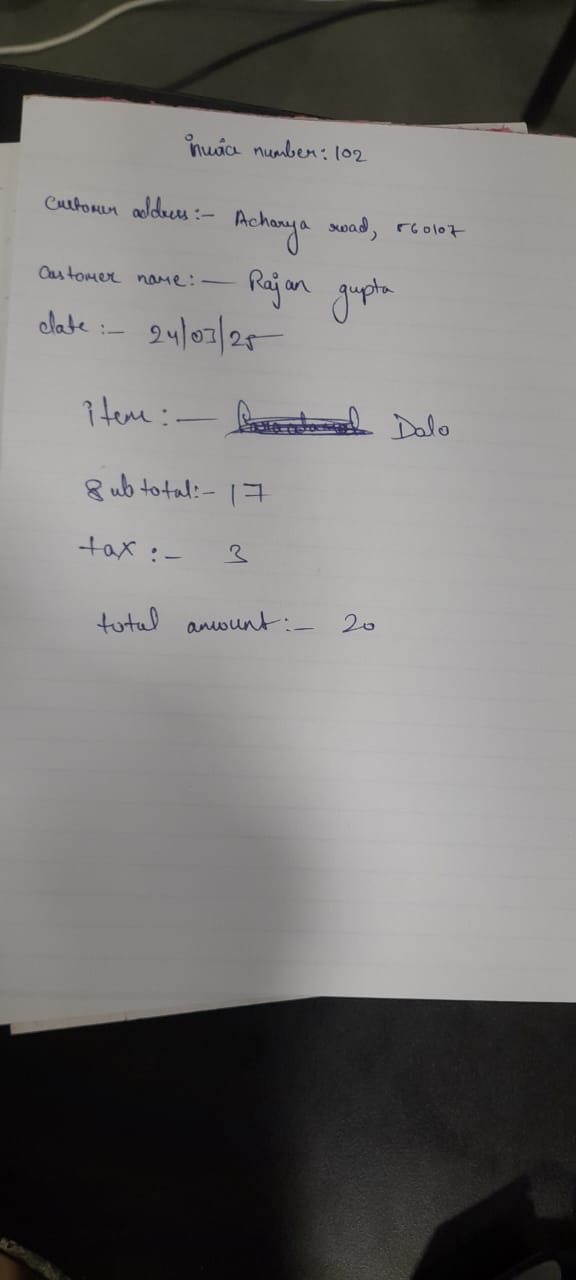 invoice number: 102
Customer address:- Acharya road, 560107
Customer name:- Rajan gupta
date :- 24/03/25
item :- Dalo
Subtotal:- 17
tax :- 3
total amount:- 20